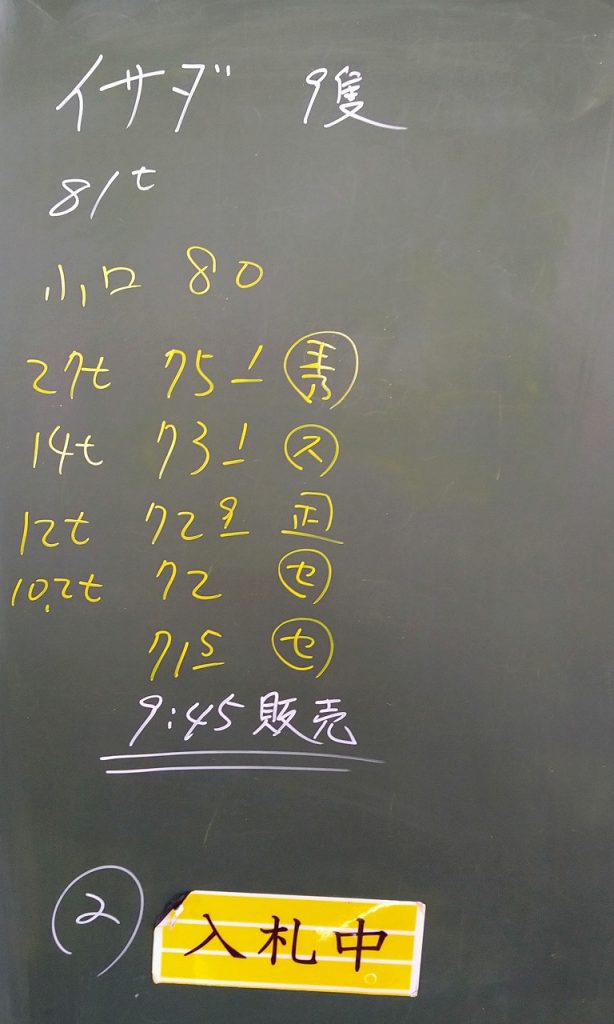 イサダ 9隻
81t
小口 80
27t 751 秀
14t 731 ス
12t 729 正
10.2t 72 セ
715 セ
9:45 販売
2 入札中